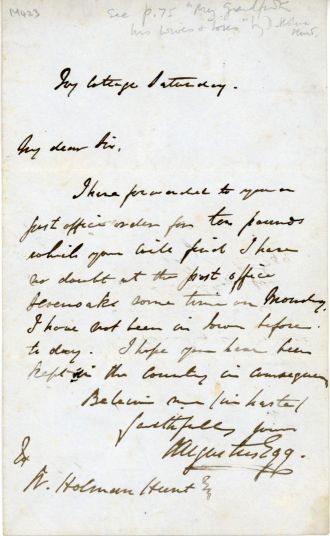 M423
See p.75 "My Grandfather
his Wives & Loves" by D. Holman
Hunt.
Ivy Cottage Saturday.
My dear Sir,
I have forwarded to you a
post office order for ten pounds
which you will find I have
no doubt at the post office
Sevenoaks some time on Monday,
I have not been in town before
to day. I hope you have been
kept in the country in consequence
Believe me (in haste)
faithfully yours
Augustus Egg.
To
W. Holman Hunt Esq